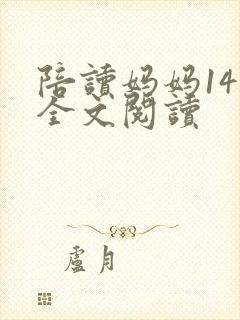 陪讀妈妈14
全文閱讀
盧月